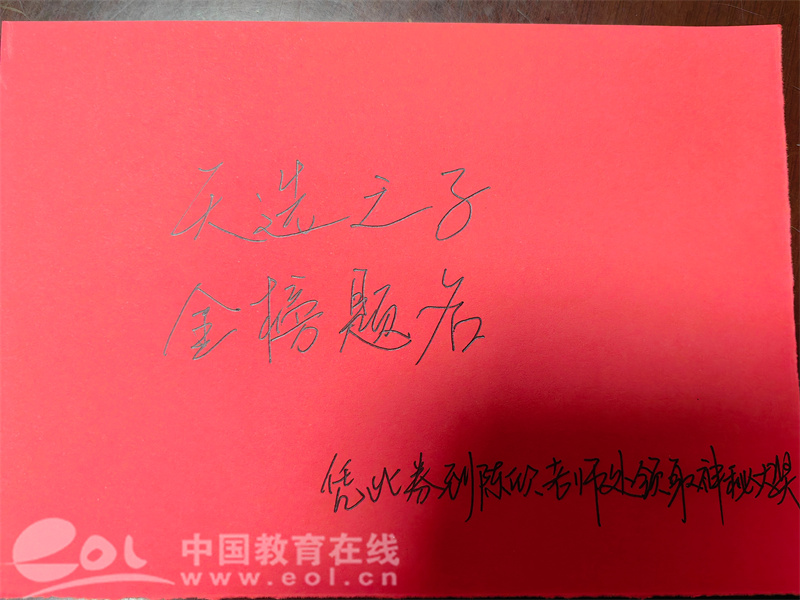 天选之子
金榜题名
凭此券到陈欣老师处领取神秘大奖
eol 中国教育在线
www.eol.cn